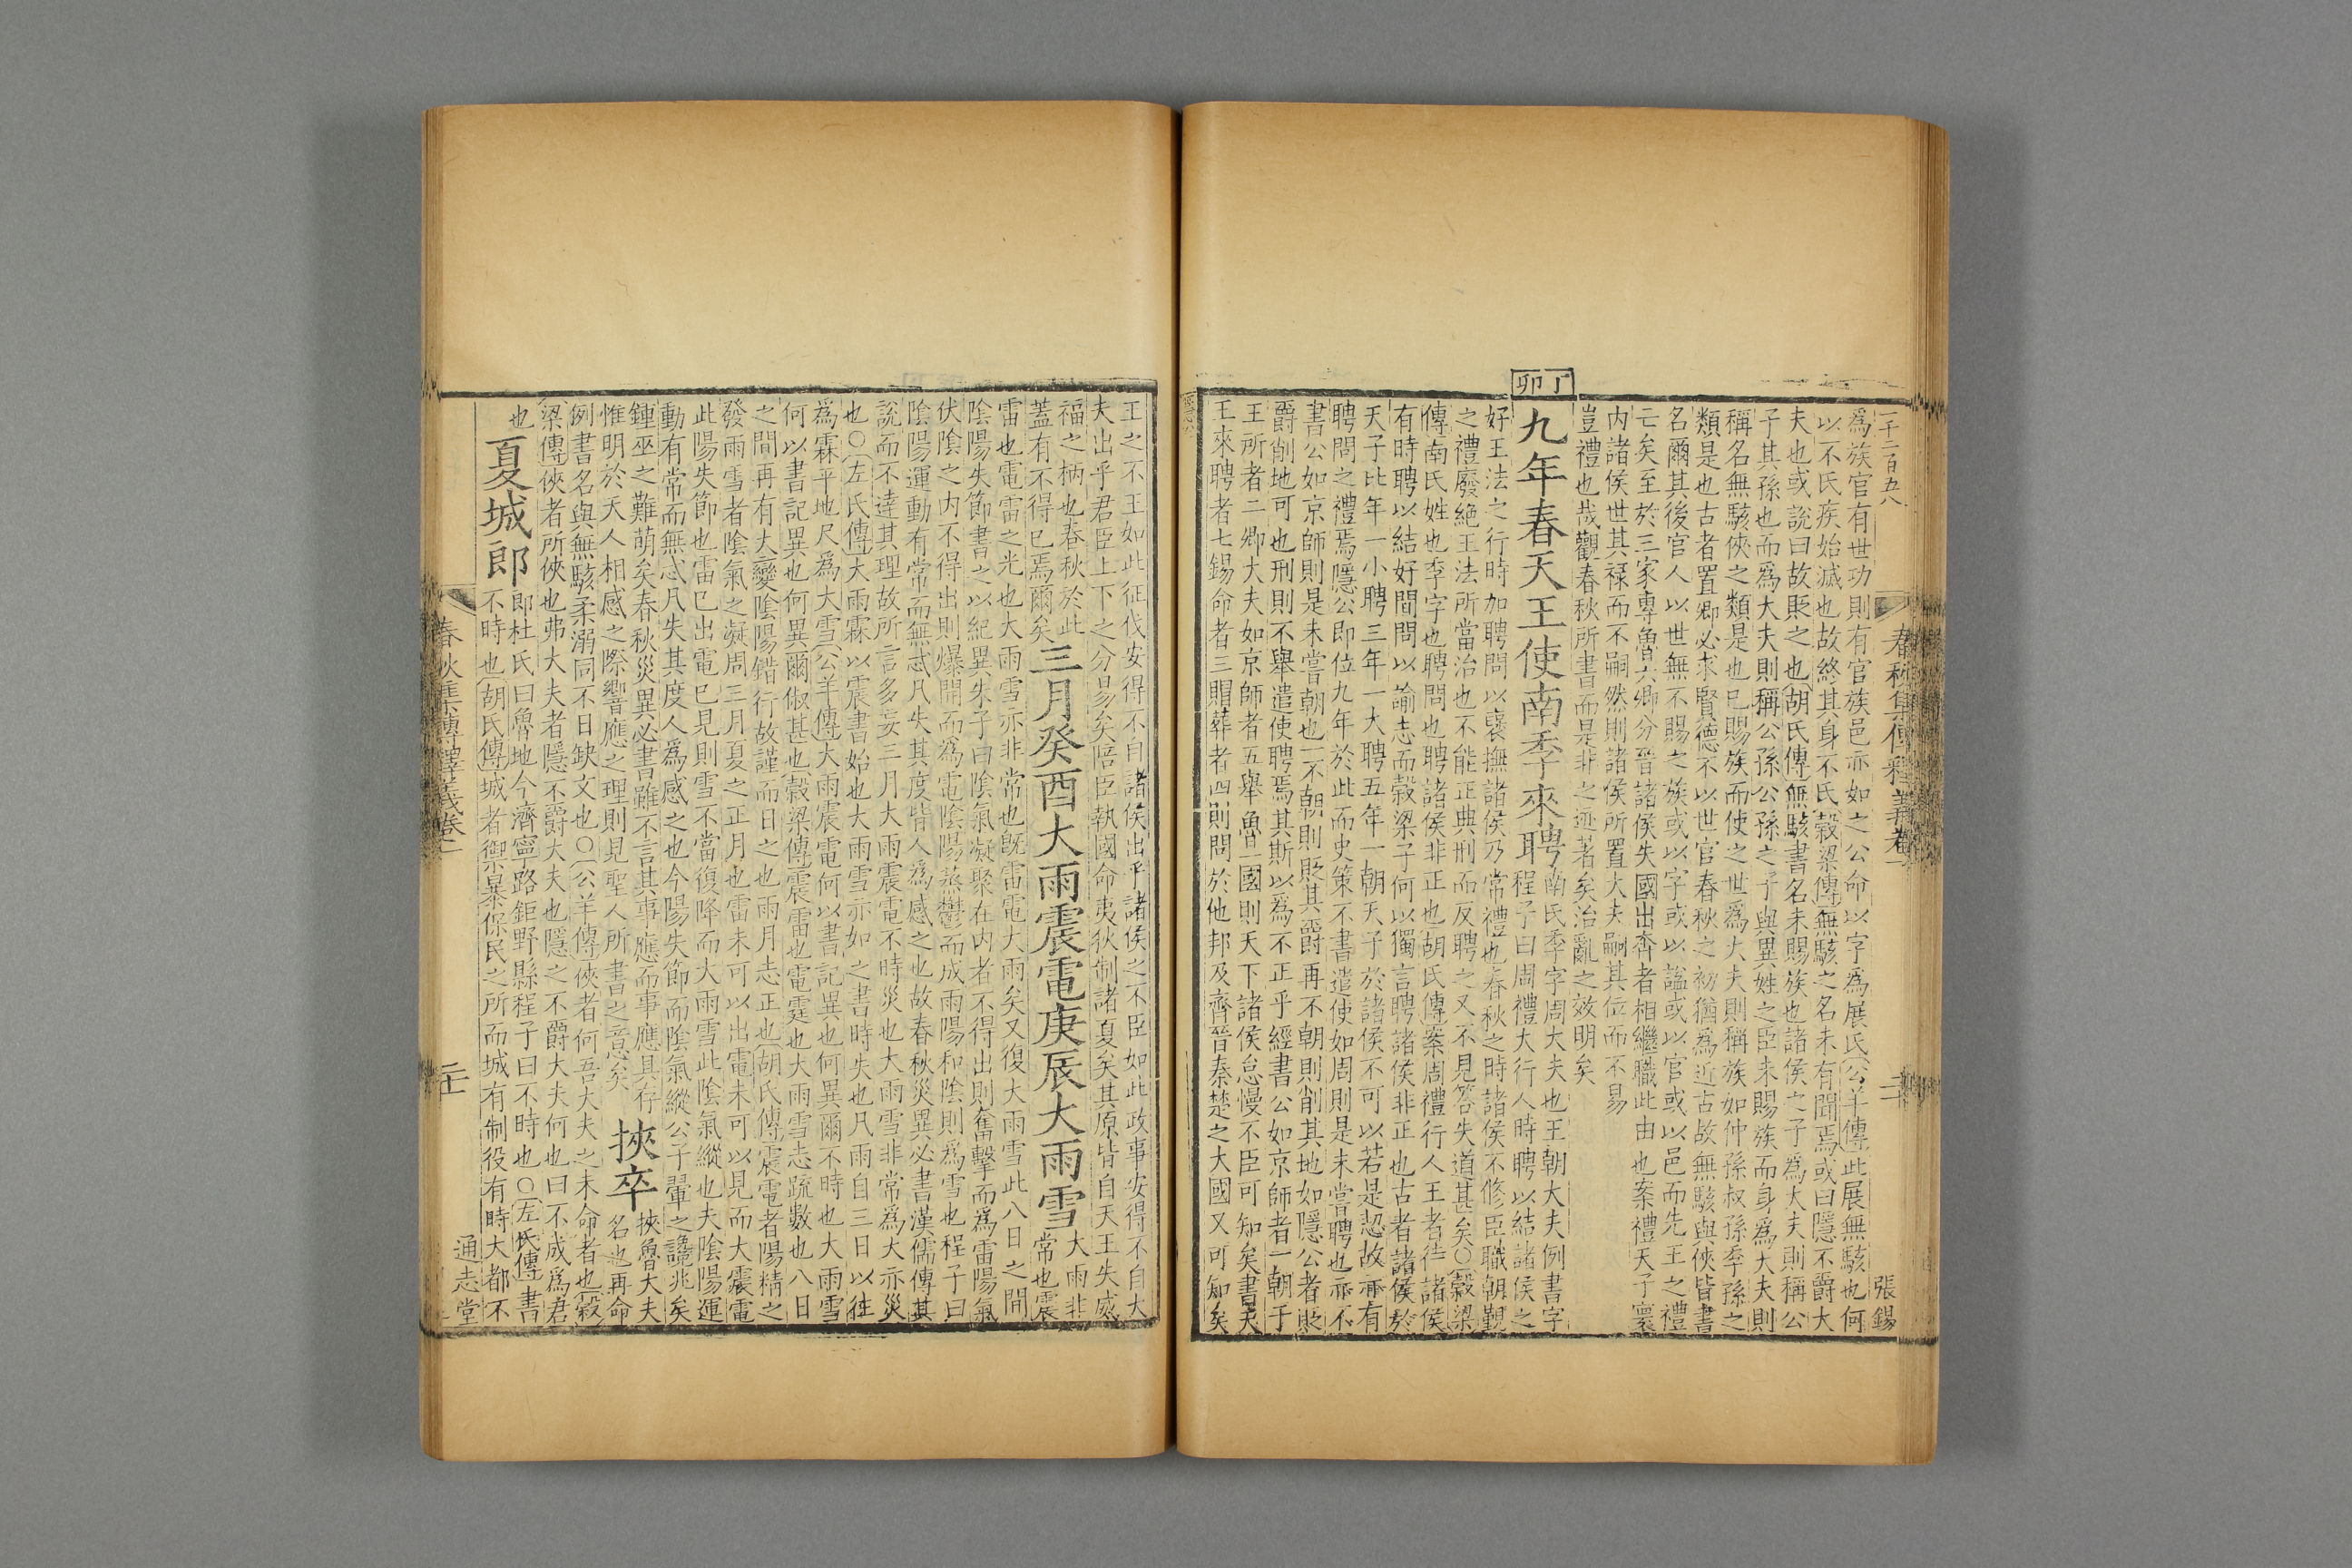 一千二百五八
春秋集傳釋義卷
張錫
爲族官有世功則有官族邑亦如之公命以字爲展氏公羊傳此展無駭也何
以不氏疾始滅也故終其身不氏穀梁傳無駭之名未有聞焉或曰隱不爵大
夫也或說曰故貶之也胡氏傳無駭書名未賜族也諸侯之子爲大夫則稱公
子其孫也而爲大夫則稱公孫公孫之子與異姓之臣未賜族而身爲大夫則
稱名無駭俠之類是也已賜族而使之世爲大夫則稱族如仲孫叔孫季孫之
類是也古者置卿必求賢德不以世官春秋之初猶爲近古故無駭與俠皆書
名爾其後官人以世無不賜之族或以字或以謚或以官或以邑而先王之禮
亡矣至於三家專魯六卿分晉諸侯失國出奔者相繼職此由也案禮天子寰
内諸侯世其禄而不嗣然則諸侯所置大夫嗣其位而不易
豈禮也哉觀春秋所書而是非之迹著矣治亂之效明矣
丁卯
九年春天王使南季來聘南氏季字周大夫也王朝大夫例書字
程子曰周禮大行人時聘以結諸侯之
好王法之行時加聘問以褱撫諸侯乃常禮也春秋之時諸侯不修臣職朝覲
之禮廢絶王法所當治也不能正典刑而反聘之又不見答失道甚矣○穀梁
傳南氏姓也季字也聘問也聘諸侯非正也胡氏傳案周禮行人王者待諸侯
有時聘以結好間問以諭志而穀梁子何以獨言聘諸侯非正也古者諸侯於
天子比年一小聘三年一大聘五年一朝天子於諸侯不可以若是恝故亦有
聘問之禮焉隱公即位九年於此而史策不書遣使如周則是未嘗聘也亦不
書公如京師則是未嘗朝也一不朝則貶其爵再不朝則削其地如隱公者貶
爵削地可也刑則不舉遣使聘焉其斯以爲不正乎經書公如京師者一朝于
王所者二卿大夫如京師者五舉魯一國則天下諸侯怠慢不臣可知矣書天
王來聘者七錫命者三賵葬者四則問於他邦及齊晉秦楚之大國又可知矣
王之不王如此征伐安得不自諸侯出乎諸侯之不臣如此政事安得不自大
夫出乎君臣上下之分易矣陪臣執國命夷狄制諸夏矣其原皆自天王失威
福之柄也春秋於此
蓋有不得已焉爾矣
三月癸酉大雨震電庚辰大雨雪大雨非
常也震
雷也電雷之光也大雨雪亦非常也旣雷電大雨矣又復大雨雪此八日之間
陰陽失節書之以紀異朱子曰陰氣凝聚在内者不得出則奮擊而爲雷陽氣
伏陰之内不得出則爆開而爲電陰陽蒸鬱而成雨陽和陰則爲雪也程子曰
陰陽運動有常而無忒凡失其度皆人爲感之也故春秋災異必書漢儒傳其
說而不達其理故所言多妄三月大雨震電不時災也大雨雪非常爲大亦災
也○左氏傳大雨霖以震書始也大雨雪亦如之書時失也凡雨自三日以往
爲霖平地尺爲大雪公羊傳大雨震電何以書記異也何異爾不時也大雨雪
何以書記異也何異爾俶甚也穀梁傳震雷也電霆也大雨雪志疏數也八日
之間再有大變陰陽錯行故謹而日之也雨月志正也胡氏傳震電者陽精之
發雨雪者陰氣之凝周三月夏之正月也雷未可以出電未可以見而大震電
此陽失節也雷已出電已見則雪不當復降而大雨雪此陰氣縱也夫陰陽運
動有常而無忒凡失其度人爲感之也今陽失節而陰氣縱公子翬之讒兆矣
鍾巫之難萌矣春秋災異必書雖不言其事應而事應具存
惟明於天人相感之際響應之理則見聖人所書之意矣
挾卒挾魯大夫
名也再命
例書名與無駭柔溺同不日缺文也○公羊傳俠者何吾大夫之未命者也穀
梁傳俠者所俠也弗大夫者隱不爵大夫也隱之不爵大夫何也曰不成爲君
也
夏城郎郎杜氏曰魯地今濟寧路鉅野縣程子曰不時也○左氏傳書
不時也胡氏傳城者禦暴保民之所而城有制役有時大都不
春秋集傳釋義卷二
二十
通志堂